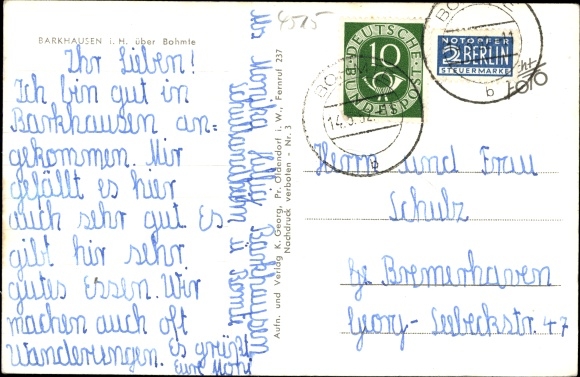 BARKHAUSEN i. H. über Bohmte
Ihr Lieben!
Ich bin gut in
Barkhausen an=
gekommen. Mir
gefällt es hier
auch sehr gut Es
gibt hir sehr
gutes Essen. Wir
machen auch oft
Wanderungen. Es grüßt
Eure Moni
4515
Barkhausen
ü. Bomte
Aufn. und Verlag K. Georg, Pr. Oldendorf i. W., Fernruf 237
Nachdruck verboten - Nr. 3
DEUTSCHE
10
BUNDESPOST
NOTOPFER
2 BERLIN
STEUERMARKE
BO
14.5.52.
b
b
Herrn und Frau
Schulz
Bremerhaven
Georg-Seebeckstr. 47